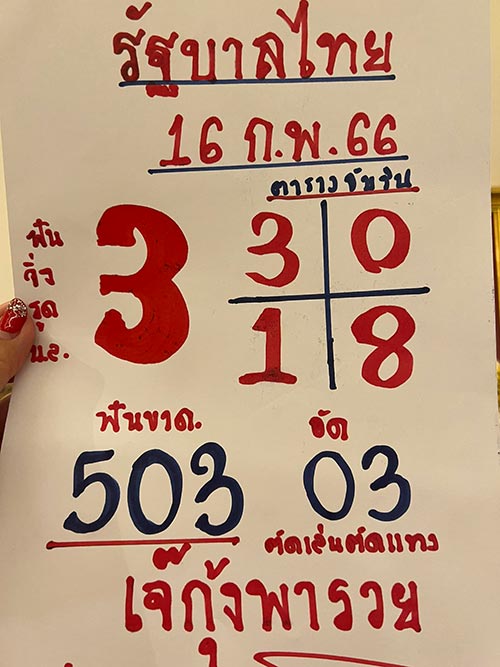 รัฐบาลไทย
16 ก.พ. 66
ตารางจับจีน
ฟัน
วิ่ง
รูด
บ.ล.
3
3 0
1 8
ฟันขาด.
503
อัด
03
ตัดเล่นตัดแทง
เจ๊กุ้งพารวย